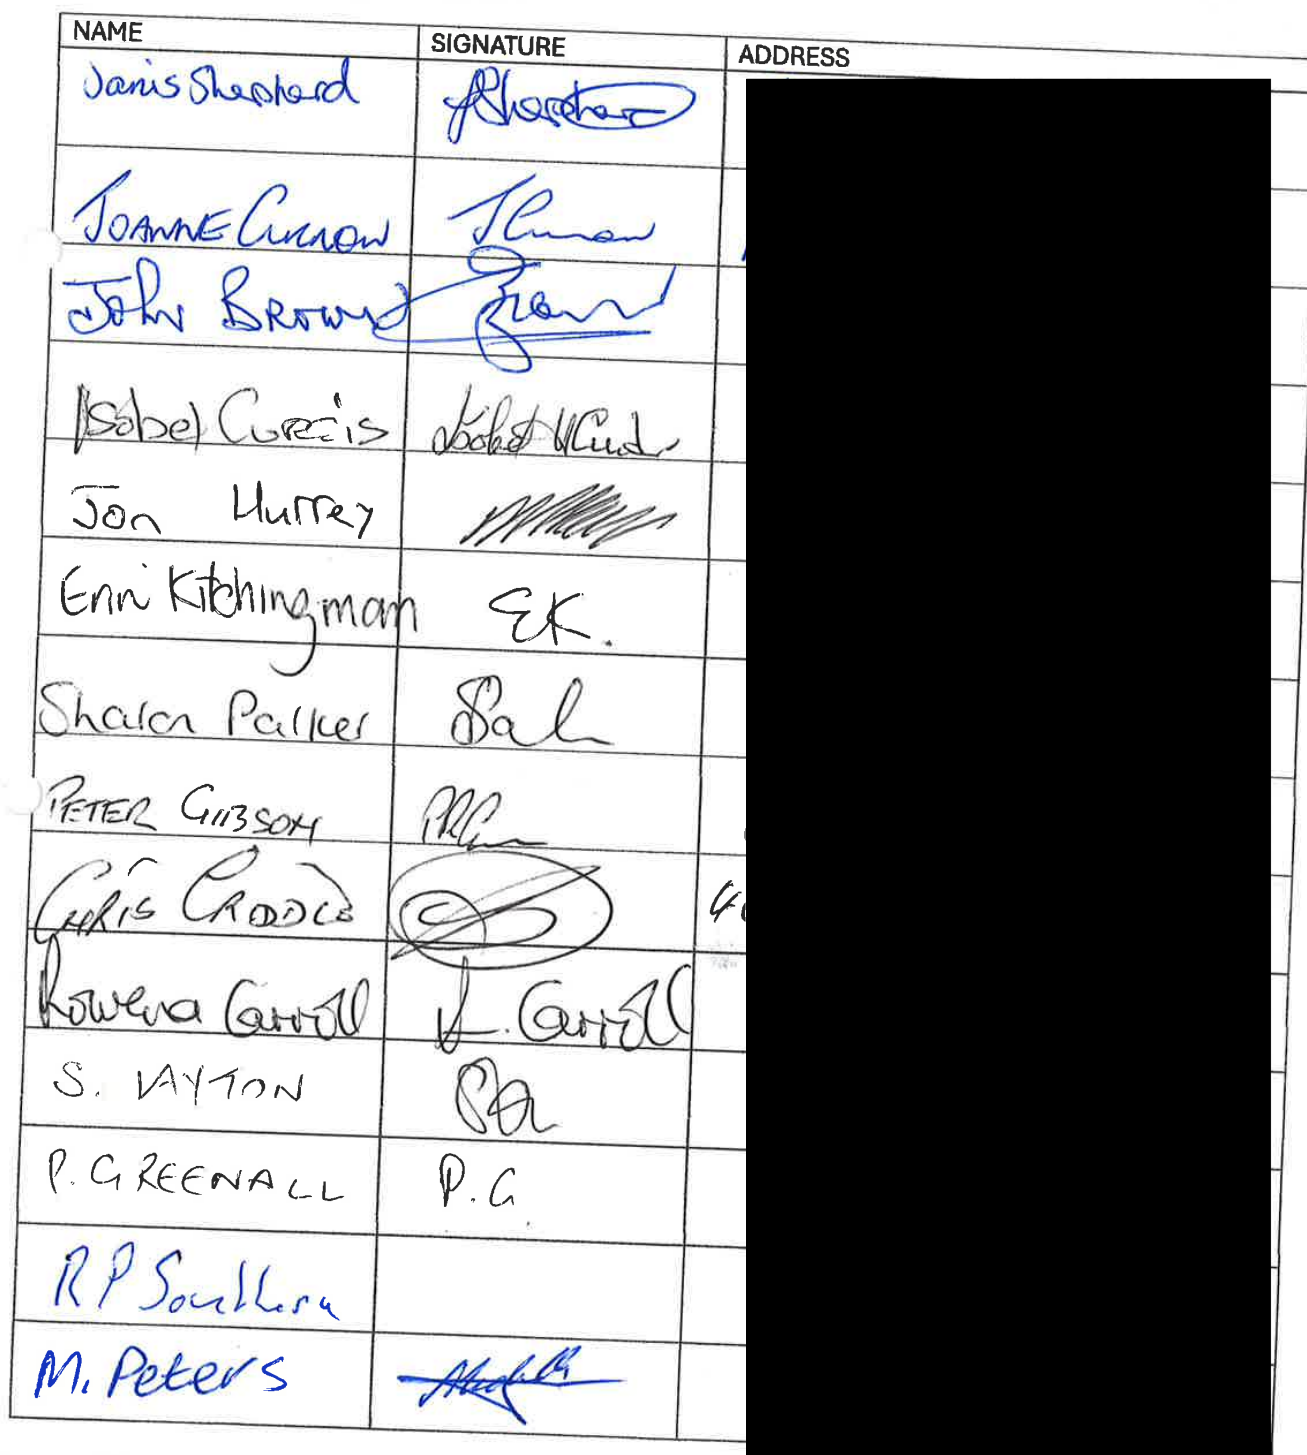 NAME SIGNATURE ADDRESS
Janis Shepherd JShepherd
JOANNE CURNOW JCurnow
JOHN BROWN Brown
Isobel Curtis
Jon Hurrey
Erin Kitchingman EK.
Sharon Parker
PETER GIBSON
CHRIS
Rowena Carroll R. Carroll
S. LAYTON
P. GREENALL P.G
R P Southern
M. Peters